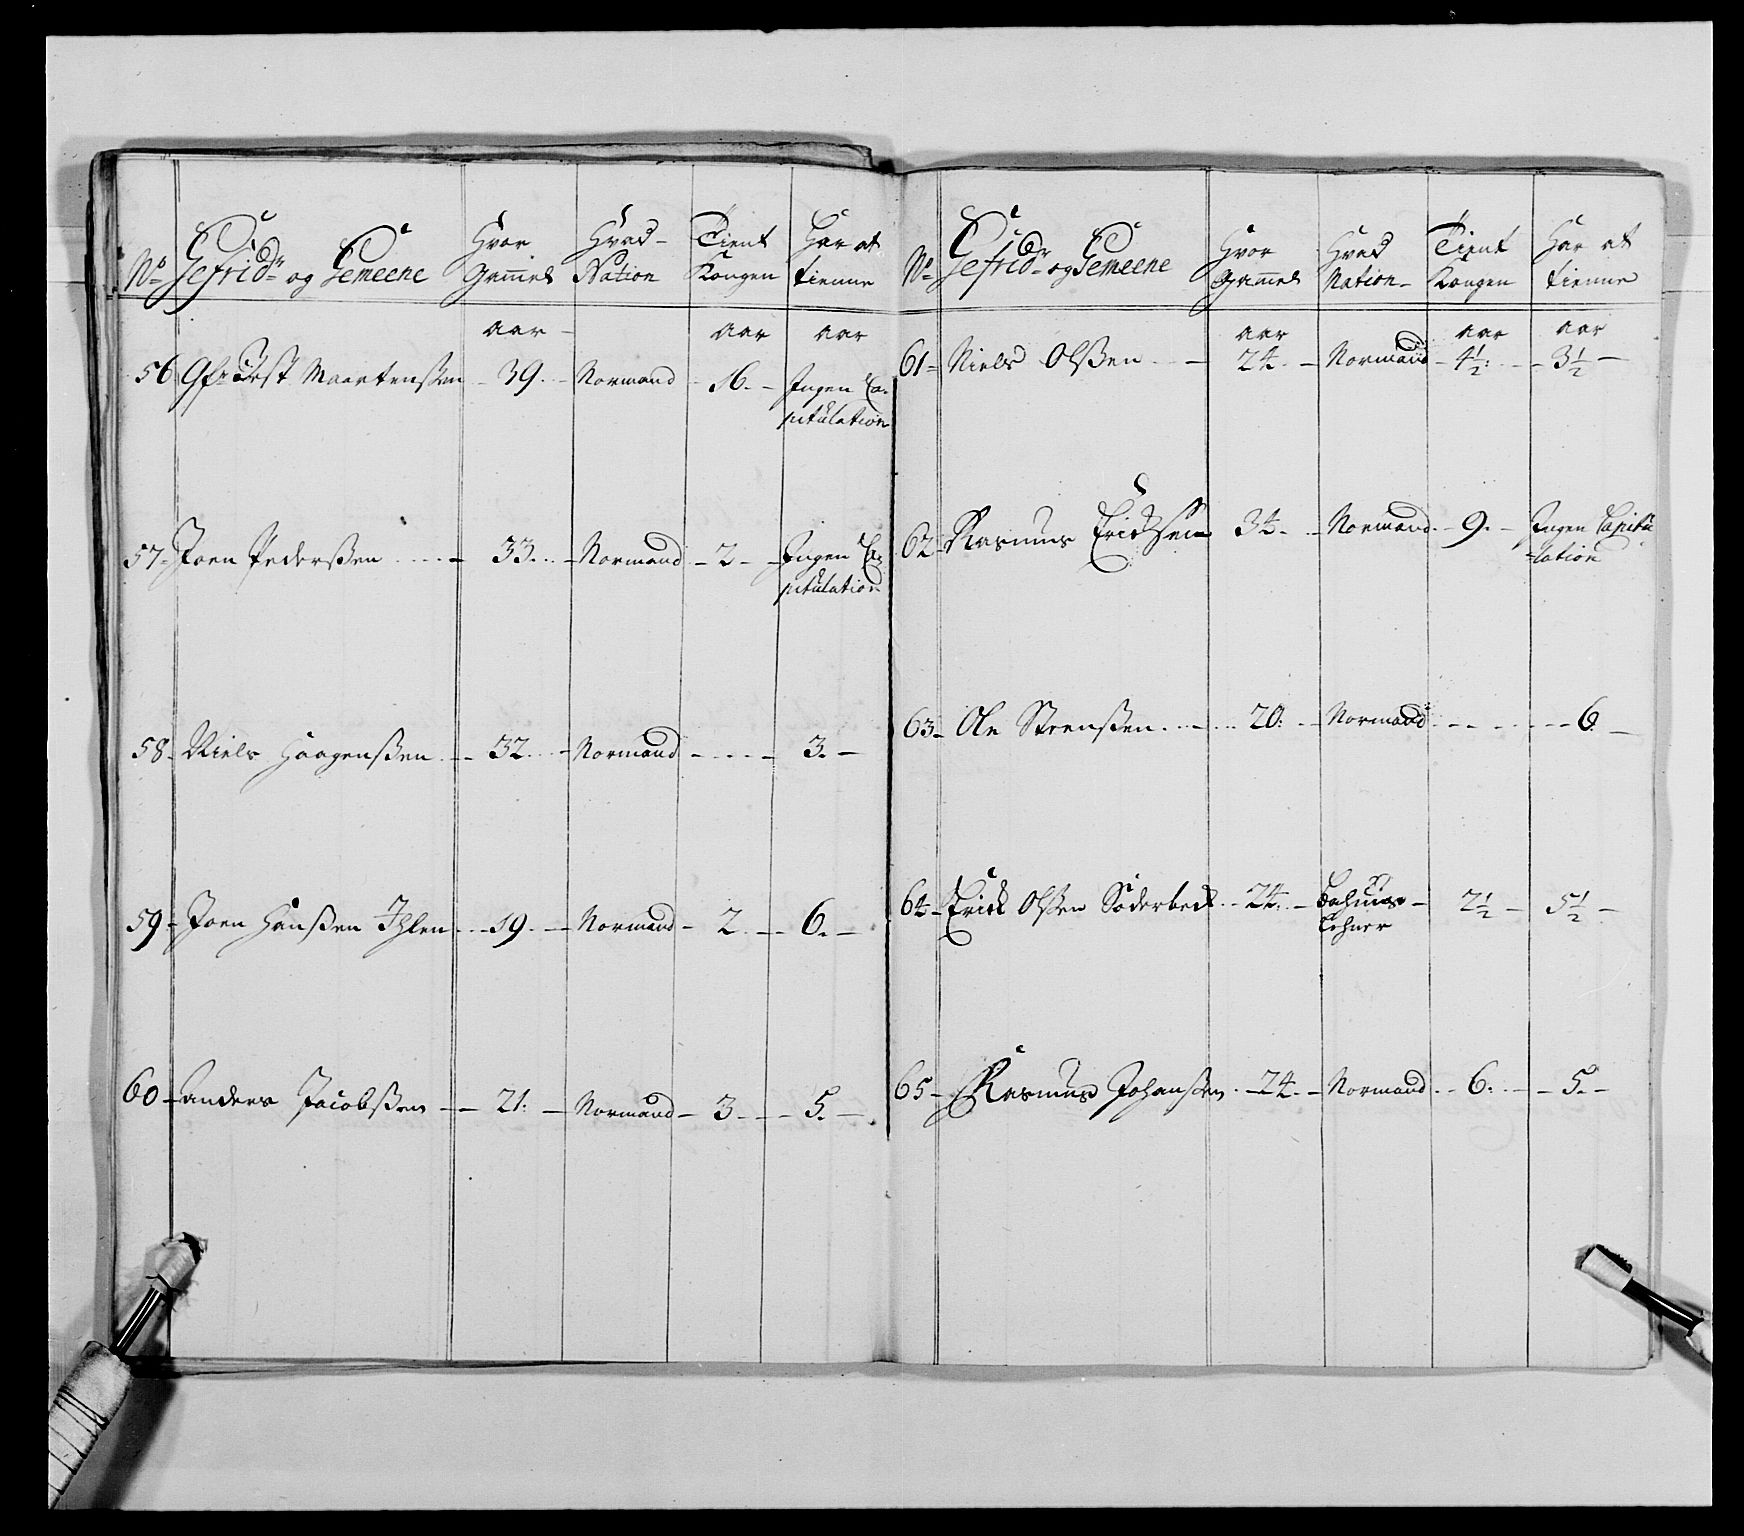 No Gefrid.r og Gemeene Hvor Gammel Hvad Nation Tient Kongen Har at tienne
aar aar aar
56 Gfr Tost Maartenßen 39. Normand 16. Ingen Ca-
pitulation
57 Joen Pederßen 33. Normand 2 Ingen Ca-
pitulation
58 Niels Haagenßen 32. Normand 3.
59 Joen Hanßen Ihlen 19. Normand 2. 6.
60 Anders Jacobßen 21. Normand 3 5.
No Gefrid.r og Gemeene Hvor Gammel Hvad Nation Tient Kongen Har at tienne
aar aar aar
61 Niels Olßen 24. Normand 4½. 3½
62 Rasmus Erichsen 34. Normand 9. Ingen Capitu
lation
63 Ole Steenßen 20. Normand 6
64 Erich Olßen Söderbech 24. Bahuus
Lehner 2½ 5½
65 Rasmus Johanßen 24. Normand 6. 5.